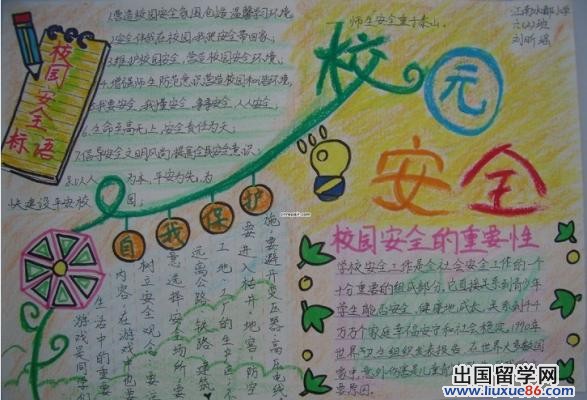 校园安全标语
1.营造校园安全氛围,创造温馨学习环境。
2.安全伴我在校园,我把安全带回家。
3.维护校园安全,营造校园安全环境。
4.增强师生防范意识,营造校园和谐环境。
5.我要安全,我懂安全,事事安全,人人安全。
6.生命至高无上,安全责任为天。
7.倡导安全文明风尚,提高全民安全意识。
8.以人为本,平安为先,为
快建设平安校园。
师生安全重于泰山
六(2)班
校元
安全
自我保护
施,要避开变压器,高压电线,
要进入枯井,地窖,防空
工地,工厂的生产区,不
远离公路,铁路,建筑
意选择安全场所,要
树立安全观念,要注
内容。在游戏中也要
生活中的重要
游戏是同学们
校园安全的重要性
学校安全工作是全社会安全工作的一个
十分重要的组成部分。它直接关系到青少年
学生能否安全、健康地成长,关系到千千
万万个家庭幸福安宁和社会稳定。1990年
世界卫生组织发表报告,在世界大多数国
家中,意外伤害是儿童
要原因。
出国留学网
www.liuxue86.com